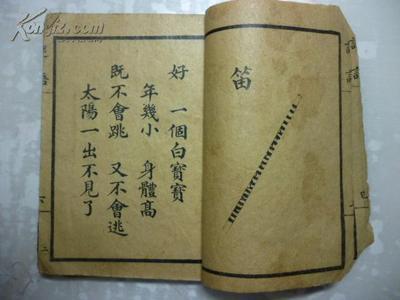 Kongfz.com
笛
好 一個白寶寶
年幾小 身體高
既不會跳 又不會逃
太陽一出不見了